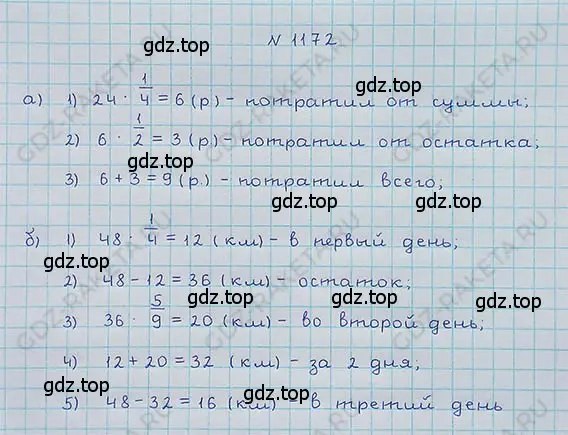 N 1172
а) 1) 24 · 1/4 = 6 (р) - потратил от суммы;
2) 6 · 1/2 = 3 (р) - потратил от остатка;
3) 6 + 3 = 9 (р.) - потратил всего;
б) 1) 48 · 1/4 = 12 (км) - в первый день;
2) 48 - 12 = 36 (км) - остаток;
3) 36 · 5/9 = 20 (км) - во второй день;
4) 12 + 20 = 32 (км) - за 2 дня;
5) 48 - 32 = 16 (км) - в третий день
gdz.top
gdz.top
gdz.top
gdz.top
gdz.top
gdz.top
gdz.top
gdz.top
gdz.top
gdz.top
GDZ-RAKETA.RU
GDZ-RAKETA.RU
GDZ-RAKETA.RU
GDZ-RAKETA.RU